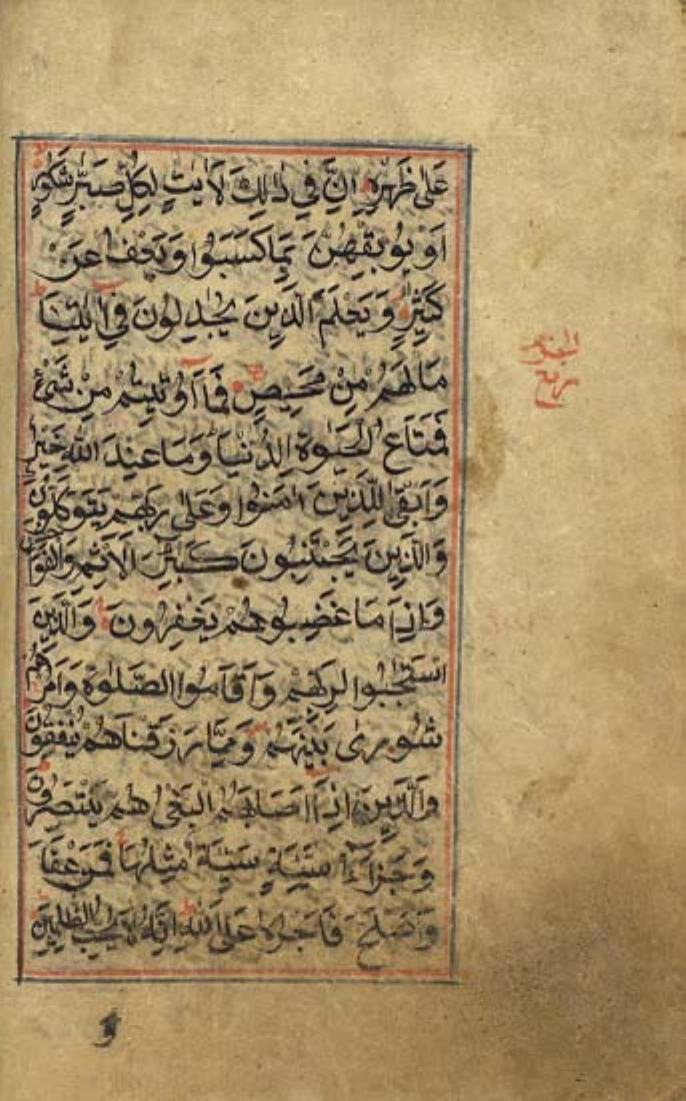 عَلٰى ظَهْرِهٖ اِنَّ فِي ذٰلِكَ لَاٰيٰتٍ لِكُلِّ صَبَّارٍ شَكُورٍ
اَوْ يُوبِقْهُنَّ بِمَا كَسَبُوا وَيَعْفُ عَنْ
كَثِيْرٍ وَيَعْلَمَ الَّذِينَ يُجٰدِلُونَ فِي اٰيٰتِنَا
مَالَهُمْ مِنْ مَحِيصٍ فَمَا اُوتِيتُمْ مِنْ شَيْءٍ
فَمَتَاعُ الْحَيٰوةِ الدُّنْيَا وَمَا عِنْدَ اللّٰهِ خَيْرٌ
وَاَبْقٰى لِلَّذِينَ اٰمَنُوا وَعَلٰى رَبِّهِمْ يَتَوَكَّلُونَ
وَالَّذِينَ يَجْتَنِبُونَ كَبٰئِرَ الْاِثْمِ وَالْفَوَاحِشَ
وَاِذَا مَا غَضِبُوا هُمْ يَغْفِرُونَ وَالَّذِينَ
اسْتَجَابُوا لِرَبِّهِمْ وَاَقَامُوا الصَّلٰوةَ وَاَمْرُهُمْ
شُورٰى بَيْنَهُمْ وَمِمَّا رَزَقْنَاهُمْ يُنْفِقُونَ
وَالَّذِينَ اِذَا اَصَابَهُمُ الْبَغْيُ هُمْ يَنْتَصِرُونَ
وَجَزَاءُ سَيِّئَةٍ سَيِّئَةٌ مِثْلُهَا فَمَنْ عَفَا
وَاَصْلَحَ فَاَجْرُهُ عَلَى اللّٰهِ اِنَّهُ لَا يُحِبُّ الظّٰلِمِينَ